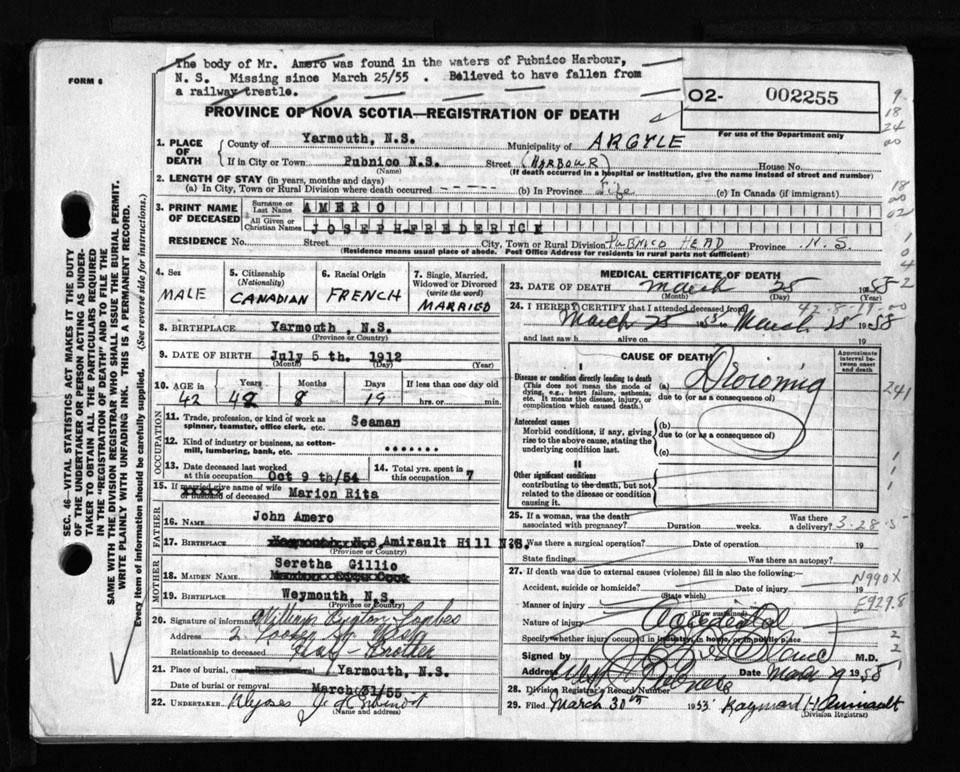 The body of Mr. Amero was found in the waters of Pubnico Harbour,
N. S. Missing since March 25/55 . Believed to have fallen from
a railway trestle.
FORM 6
O2- 002255
For use of the Department only
PROVINCE OF NOVA SCOTIA—REGISTRATION OF DEATH
1. PLACE OF DEATH
County of Yarmouth, N.S. Municipality of ARGYLE
If in City or Town Pubnico N.S. Street (HARBOUR) House No.
(Name) (If death occurred in a hospital or institution, give the name instead of street and number)
2. LENGTH OF STAY (in years, months and days)
(a) In City, Town or Rural Division where death occurred - - - - - (b) In Province Life (c) In Canada (if immigrant)
3. PRINT NAME OF DECEASED
Surname or Last Name AMERO
All Given or Christian Names JOSEPH FREDERICK
RESIDENCE No. Street City, Town or Rural Division PUBNICO HEAD Province N.S.
(Residence means usual place of abode. Post Office Address for residents in rural parts not sufficient)
4. Sex MALE
5. Citizenship (Nationality) CANADIAN
6. Racial Origin FRENCH
7. Single, Married, Widowed or Divorced (write the word) MARRIED
8. BIRTHPLACE Yarmouth , N.S.
(Province or Country)
9. DATE OF BIRTH July 5 th. 1912
(Month) (Day) (Year)
10. AGE in Years Months Days If less than one day old
42 42 8 19 hrs. or min.
OCCUPATION
11. Trade, profession, or kind of work as spinner, teamster, office clerk, etc. Seaman
12. Kind of industry or business, as cotton-mill, lumbering, bank, etc. .......
13. Date deceased last worked at this occupation Oct 9 th/54
14. Total yrs. spent in this occupation 7
15. If married give name of wife or husband of deceased Marion Rita
FATHER
16. NAME John Amero
17. BIRTHPLACE Amirault Hill N.S.
(Province or Country)
MOTHER
18. MAIDEN NAME Seretha Gillio
19. BIRTHPLACE Weymouth, N.S.
(Province or Country)
20. Signature of informant William
Address 2
Relationship to deceased Half-Brother
21. Place of burial, Yarmouth, N.S.
Date of burial or removal March 31/55
22. UNDERTAKER
(Name and address)
MEDICAL CERTIFICATE OF DEATH
23. DATE OF DEATH March 25 1955
(Month) (Day) (Year)
24. I HEREBY CERTIFY that I attended deceased from
March 25 1955 March 25 1955
and last saw h alive on 19
CAUSE OF DEATH
Approximate interval between onset and death
I
Disease or condition directly leading to death
(This does not mean the mode of dying, e.g., heart failure, asthenia, etc. It means the disease, injury, or complication which caused death.)
(a) Drowning
due to (or as a consequence of)
Antecedent causes
Morbid conditions, if any, giving rise to the above cause, stating the underlying condition last.
(b)
due to (or as a consequence of)
(c)
II
Other significant conditions
contributing to the death, but not related to the disease or condition causing it.
25. If a woman, was the death associated with pregnancy? Duration weeks. Was there a delivery?
3-28-5
26. Was there a surgical operation? Date of operation 19
State findings Was there an autopsy?
27. If death was due to external causes (violence) fill in also the following:—
Accident, suicide or homicide? Date of injury 19
(State which)
Manner of injury
(How sustained)
Nature of injury Accidental
Specify whether injury occurred in industry, in home, or in public place
Signed by M.D.
Address Date March 29 1955
28. Division Registrar's Record Number
29. Filed March 30th 1955 Raymond H Amirault
(Division Registrar)
N990X
E929.8
241
SEC. 46—VITAL STATISTICS ACT MAKES IT THE DUTY
OF THE UNDERTAKER OR PERSON ACTING AS UNDER-
TAKER TO OBTAIN ALL THE PARTICULARS REQUIRED
IN THE "REGISTRATION OF DEATH" AND TO FILE THE
SAME WITH THE DIVISION REGISTRAR WHO SHALL ISSUE THE BURIAL PERMIT.
WRITE PLAINLY WITH UNFADING INK. THIS IS A PERMANENT RECORD.
Every item of information should be carefully supplied. (See reverse side for instructions.)